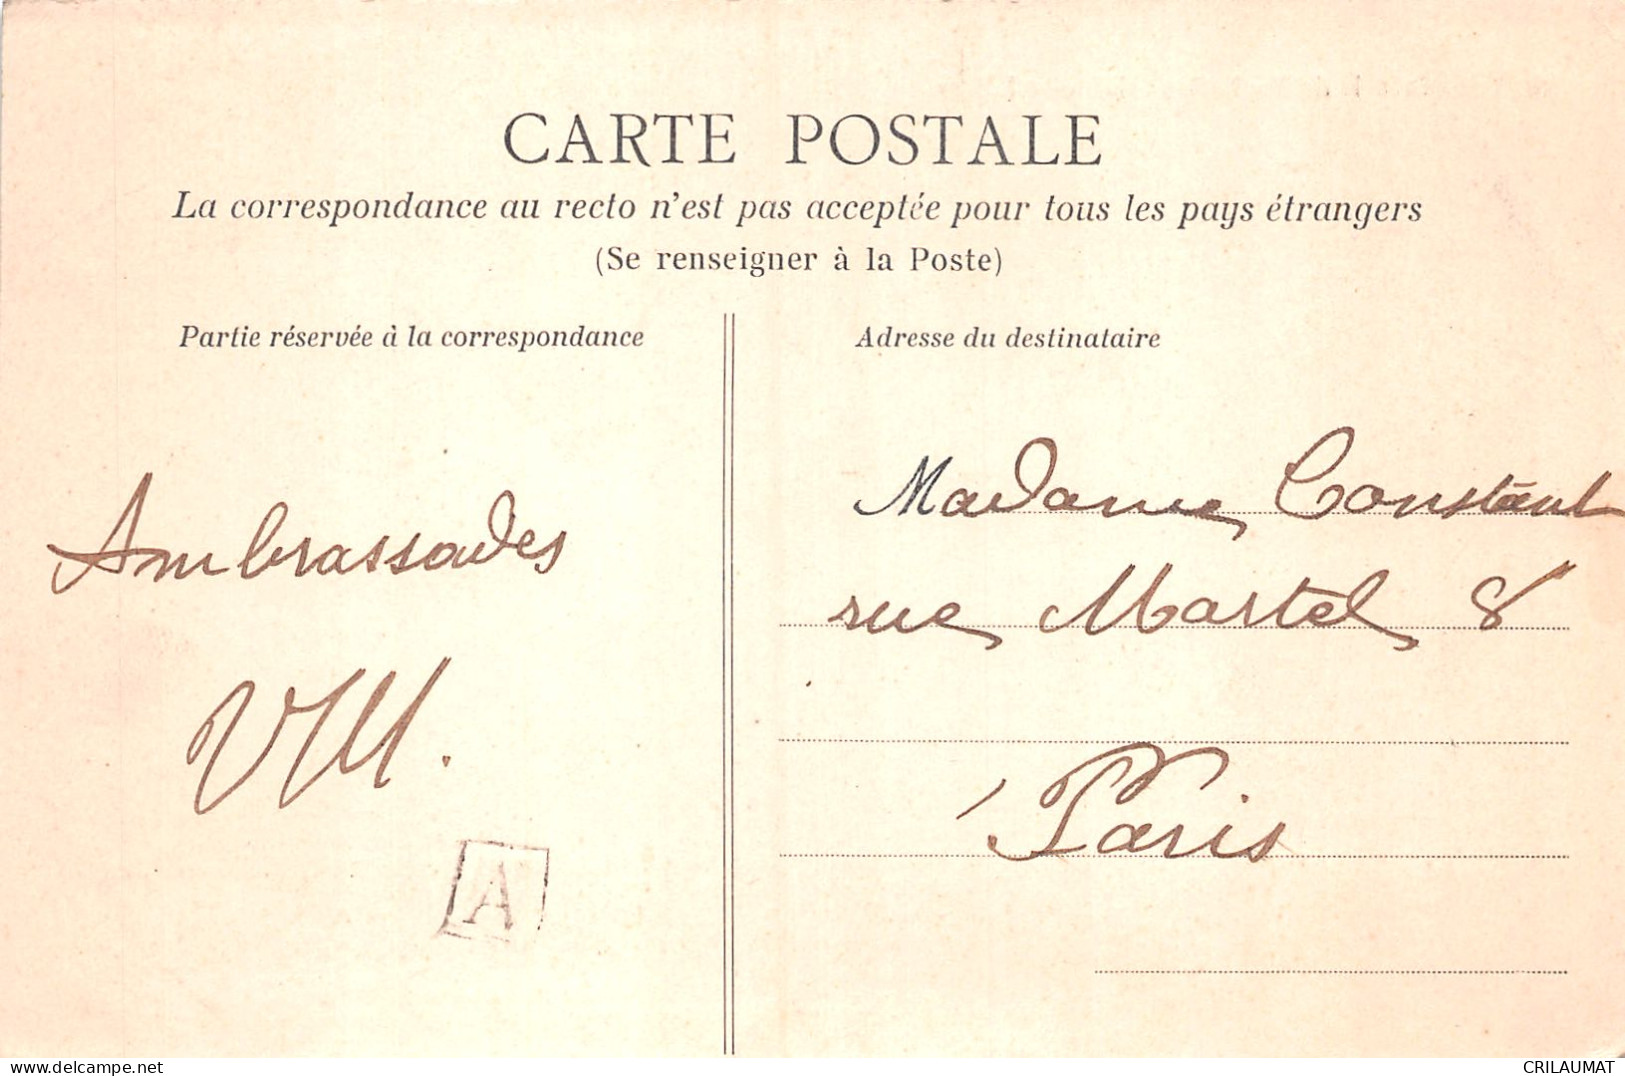 CARTE POSTALE
La correspondance au recto n'est pas acceptée pour tous les pays étrangers
(Se renseigner à la Poste)
Partie réservée à la correspondance
Ambrassades
A
Adresse du destinataire
Madame Constant
rue Martel 8
Paris
delcampe.net
CRILAUMAT